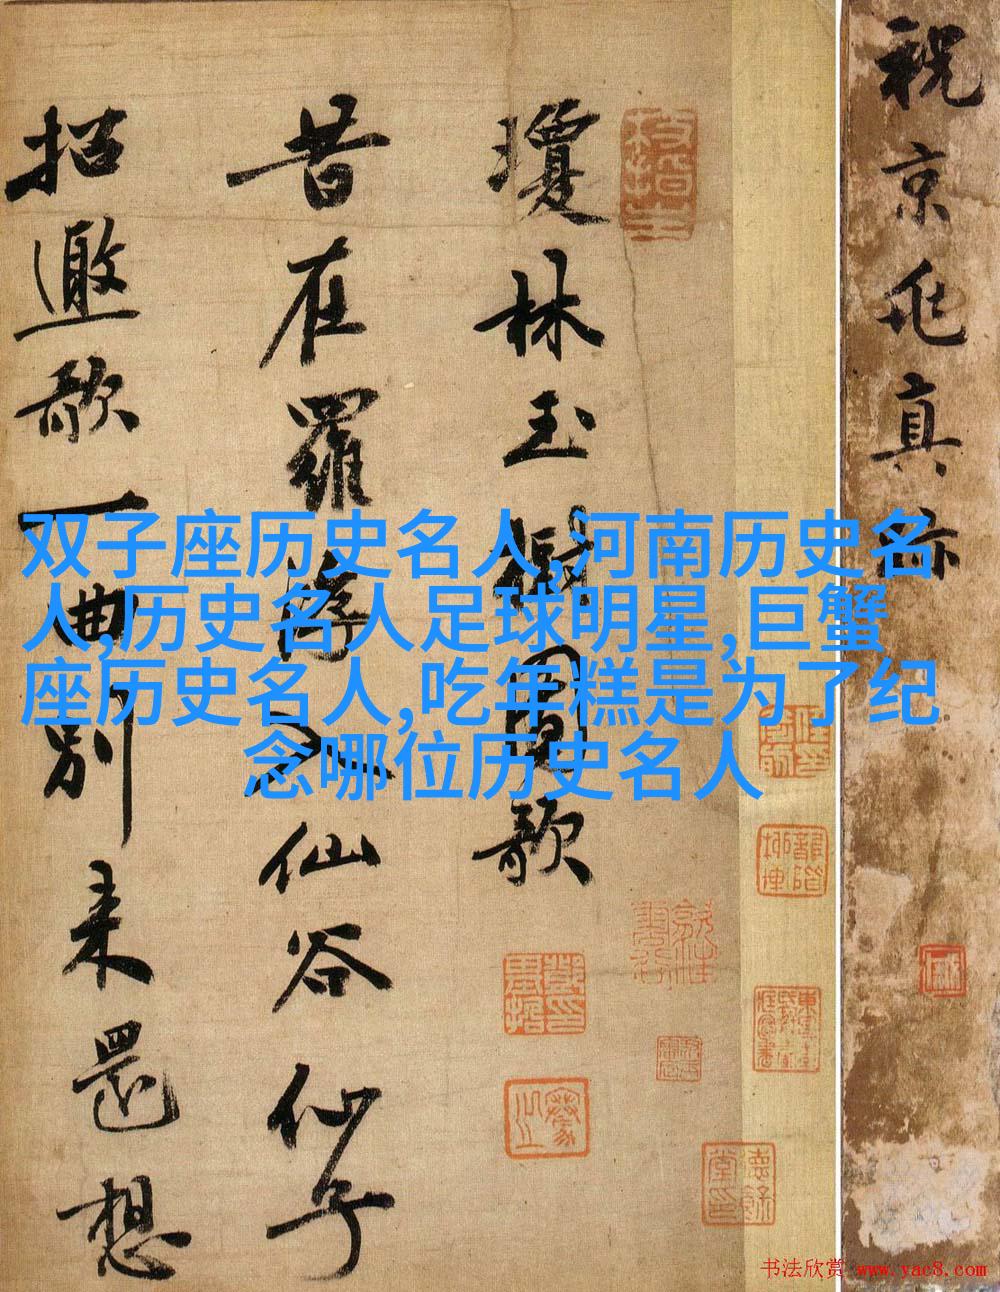 祝京兆真
瓊林玉圖歌
昔在羅浮入仙谷仙子
招邀歌一曲別来還想
双子座历史名人,河南历史名
人,历史名人足球明星,巨蟹
座历史名人,吃年糕是为了纪
念哪位历史名人
书法欣赏 www.yac8.com